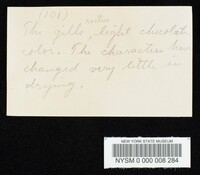 (101)
rather
The gills, light chocolate
color. The characters have
changed very little in
drying.
NEW YORK STATE MUSEUM
NYSM 0 000 008 284